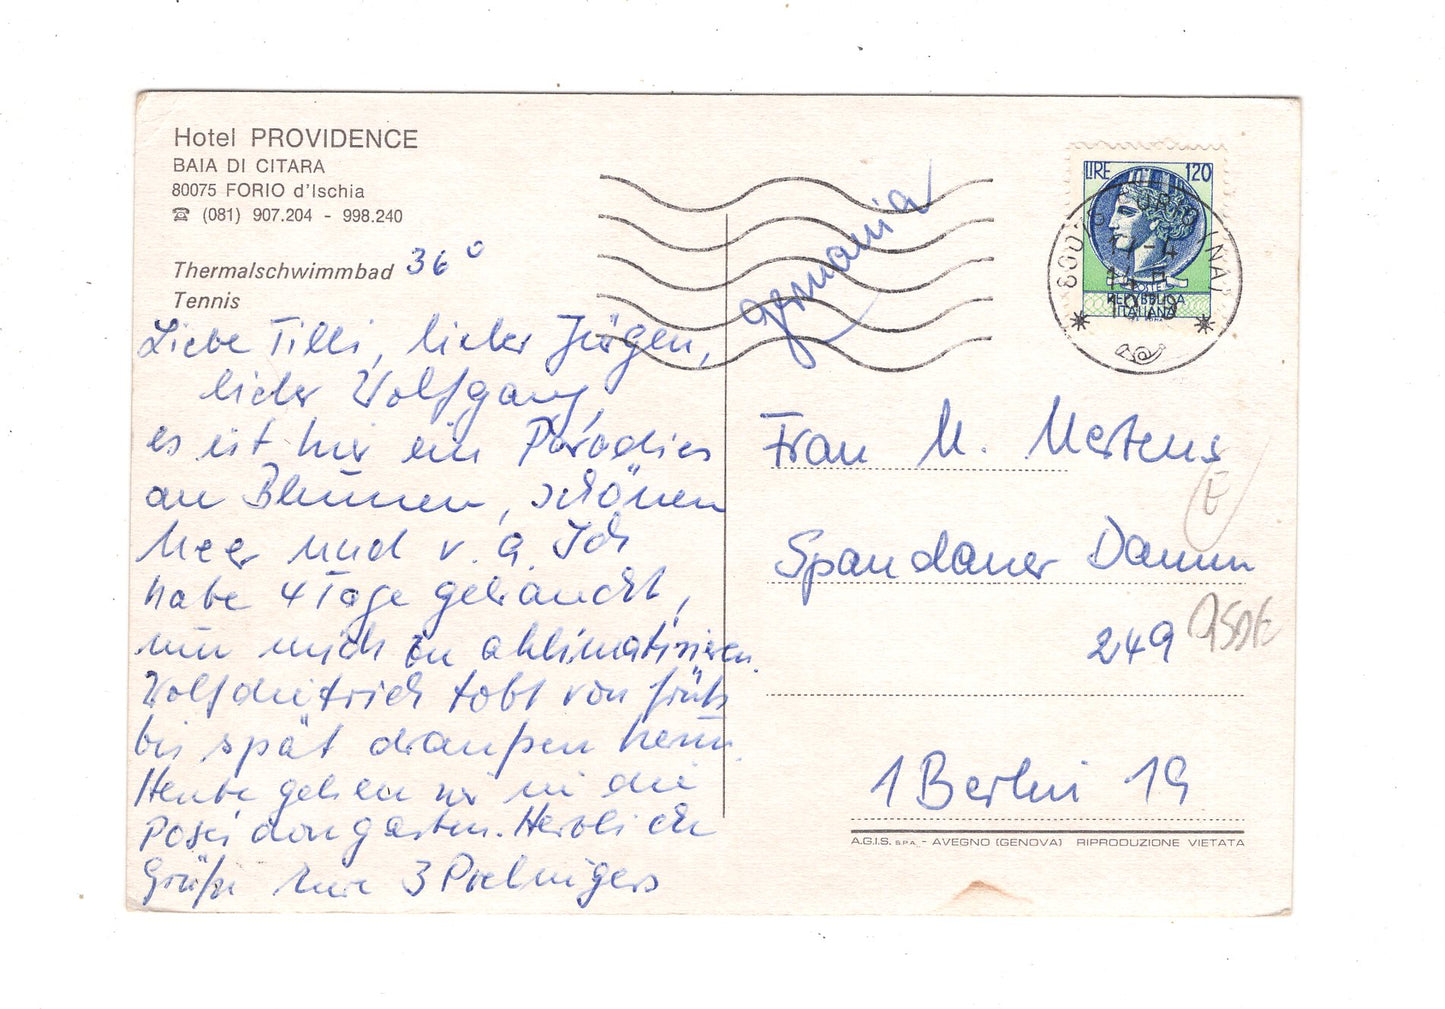 Hotel PROVIDENCE
BAIA DI CITARA
80075 FORIO d'Ischia
☎ (081) 907.204 - 998.240
Thermalschwimmbad 36°
Tennis
Liebe Tilli, lieber Jürgen,
lieber Wolfgang,
es ist hier ein Paradies
an Blumen, schönen
Meer und v. a. Ich
habe 4 Tage gebraucht,
um mich zu aklimatisieren.
Wolfdietrich tobt von früh
bis spät draußen herum.
Heute gehen wir in die
Poseidongärten. Herzliche
Grüße Eure 3
germania
LIRE 120
POSTE
REPVBBLICA
ITALIANA
80075 FORIO (NA)
17-4
Frau M. Mertens
Spandauer Damm
249
1 Berlin 19
A.G.I.S. S.P.A. - AVEGNO (GENOVA) RIPRODUZIONE VIETATA